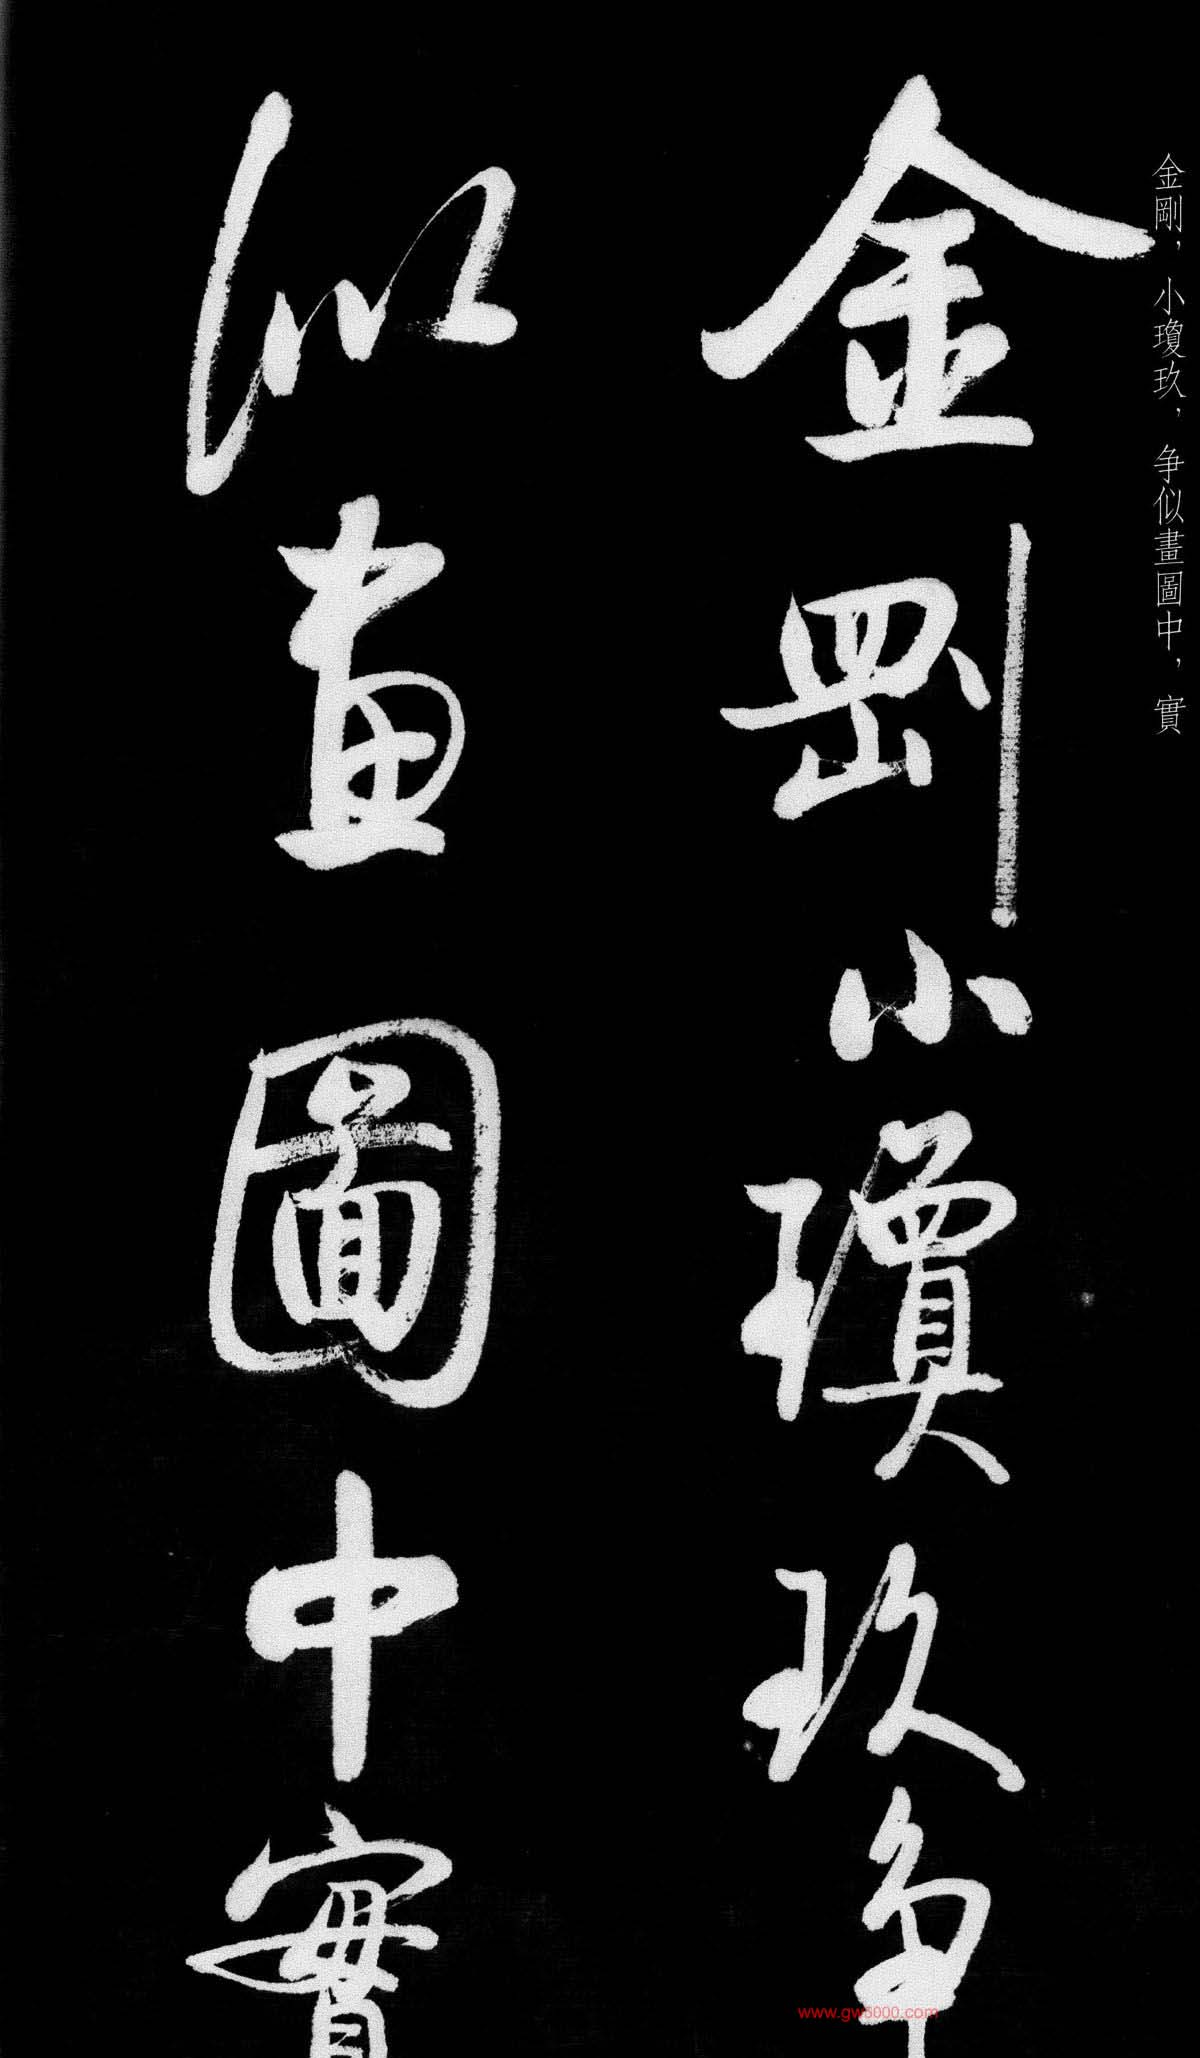 金剛，小瓊玖，争似畫圖中，實
金剛小瓊玖争
似畫圖中實
www.gw5000.com